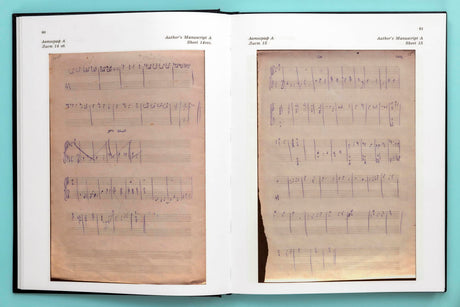 60
Автограф А
Лист 14 об.
Author's Manuscript A
Sheet 14rev.
61
Author's Manuscript A
Sheet 15
Автограф А
Лист 15